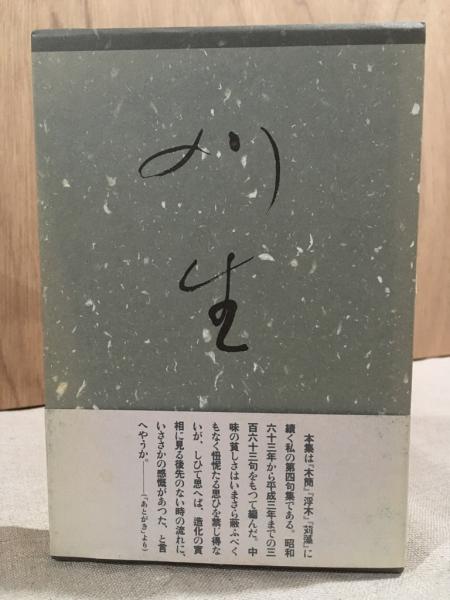 刈生
本集は『木簡』『浮木』『苅藻』に
續く私の第四句集である。昭和
六十三年から平成三年までの三
百六十三句をもつて編んだ。中
味の貧しさはいまさら蔽ふべく
もなく忸怩たる思ひを禁じ得な
いが、しひて思へば、造化の實
相に見る後先のない時の流れに、
いささかの感慨があつた、と言
へやうか。――（「あとがき」より）